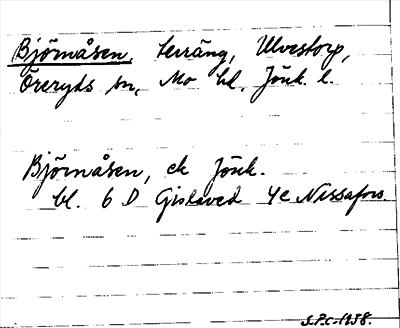 Björnåsen, terräng, Ulvestorp,
Öreryds sn, Mo hd, Jönk. l.
Björnåsen, ek Jönk.
bl. 6 D Gislaved 4c Nissafors.
S.P.C.-1958.